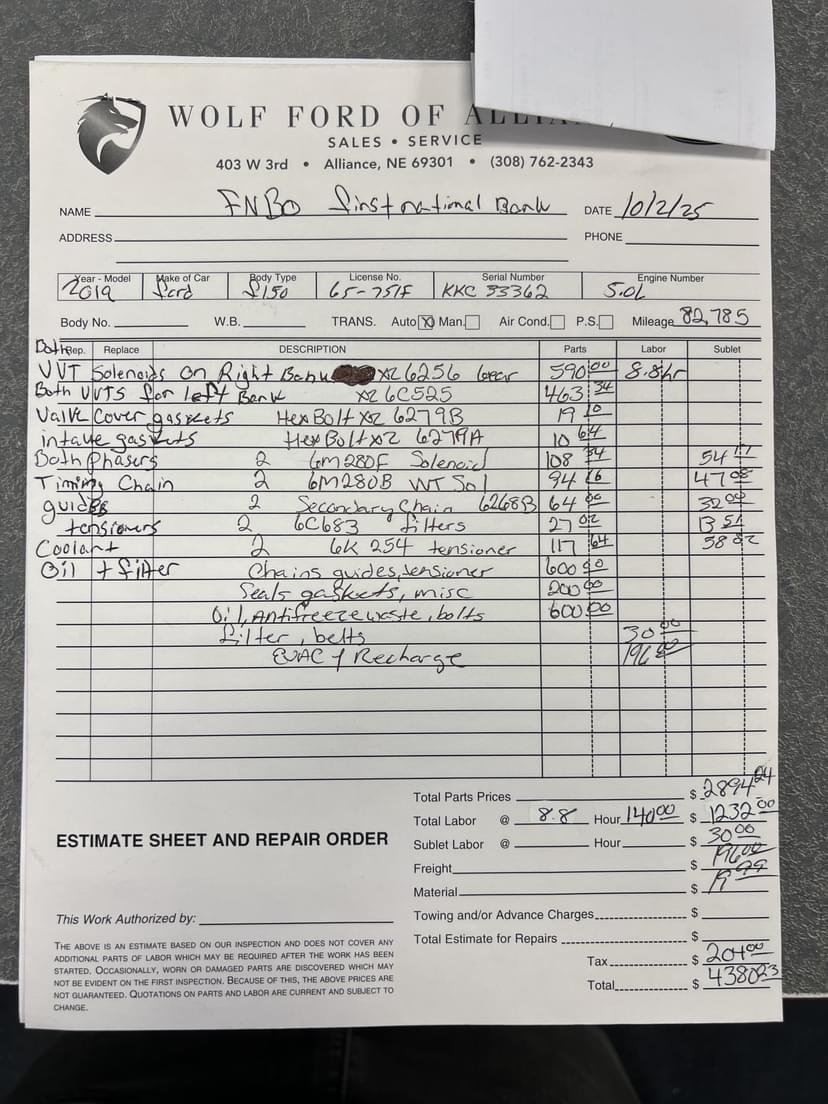 WOLF FORD OF ALLIAN
SALES • SERVICE
403 W 3rd • Alliance, NE 69301 • (308) 762-2343
NAME FNBO first national Bank DATE 10/2/25
ADDRESS PHONE
Year - Model Make of Car Body Type License No. Serial Number Engine Number
2019 ford f150 65-751F KKC 33362 5.0L
Body No. W.B. TRANS. Auto X Man. Air Cond. P.S. Mileage 82,785
Both Rep. Replace DESCRIPTION Parts Labor Sublet
VVT Solenoids on Right Bank x2 6256 Gear 590 00 8.8hr
Both VVTS for left Bank x2 6C525 463 34
Valve cover gaskets Hex Bolt x2 6279B 19 10
intake gaskets Hex Bolt x2 6279A 10 64
Both Phasers 2 6M280F Solenoid 108 34 54 17
Timing Chain 2 6M280B VVT Sol 94 16 47 08
guides 2 Secondary Chain 6268B 64 00 32 00
tensioners 2 6C683 filters 27 02 13 51
Coolant 2 6K 254 tensioner 117 64 58 82
Oil + filter Chains guides, tensioner 600 00
Seals gaskets, misc 200 00
Oil, Antifreeze waste, bolts 600 00
filter, belts 30 00
EVAC & Recharge 196 00
Total Parts Prices $ 2894 24
Total Labor @ 8.8 Hour 140 00 $ 1232 00
ESTIMATE SHEET AND REPAIR ORDER
Sublet Labor @ Hour $ 30 00
Freight $ 196 00
Material $ 19 99
This Work Authorized by:
Towing and/or Advance Charges $
Total Estimate for Repairs $
Tax $ 204 00
Total $ 4380 23
THE ABOVE IS AN ESTIMATE BASED ON OUR INSPECTION AND DOES NOT COVER ANY
ADDITIONAL PARTS OF LABOR WHICH MAY BE REQUIRED AFTER THE WORK HAS BEEN
STARTED. OCCASIONALLY, WORN OR DAMAGED PARTS ARE DISCOVERED WHICH MAY
NOT BE EVIDENT ON THE FIRST INSPECTION. BECAUSE OF THIS, THE ABOVE PRICES ARE
NOT GUARANTEED. QUOTATIONS ON PARTS AND LABOR ARE CURRENT AND SUBJECT TO
CHANGE.